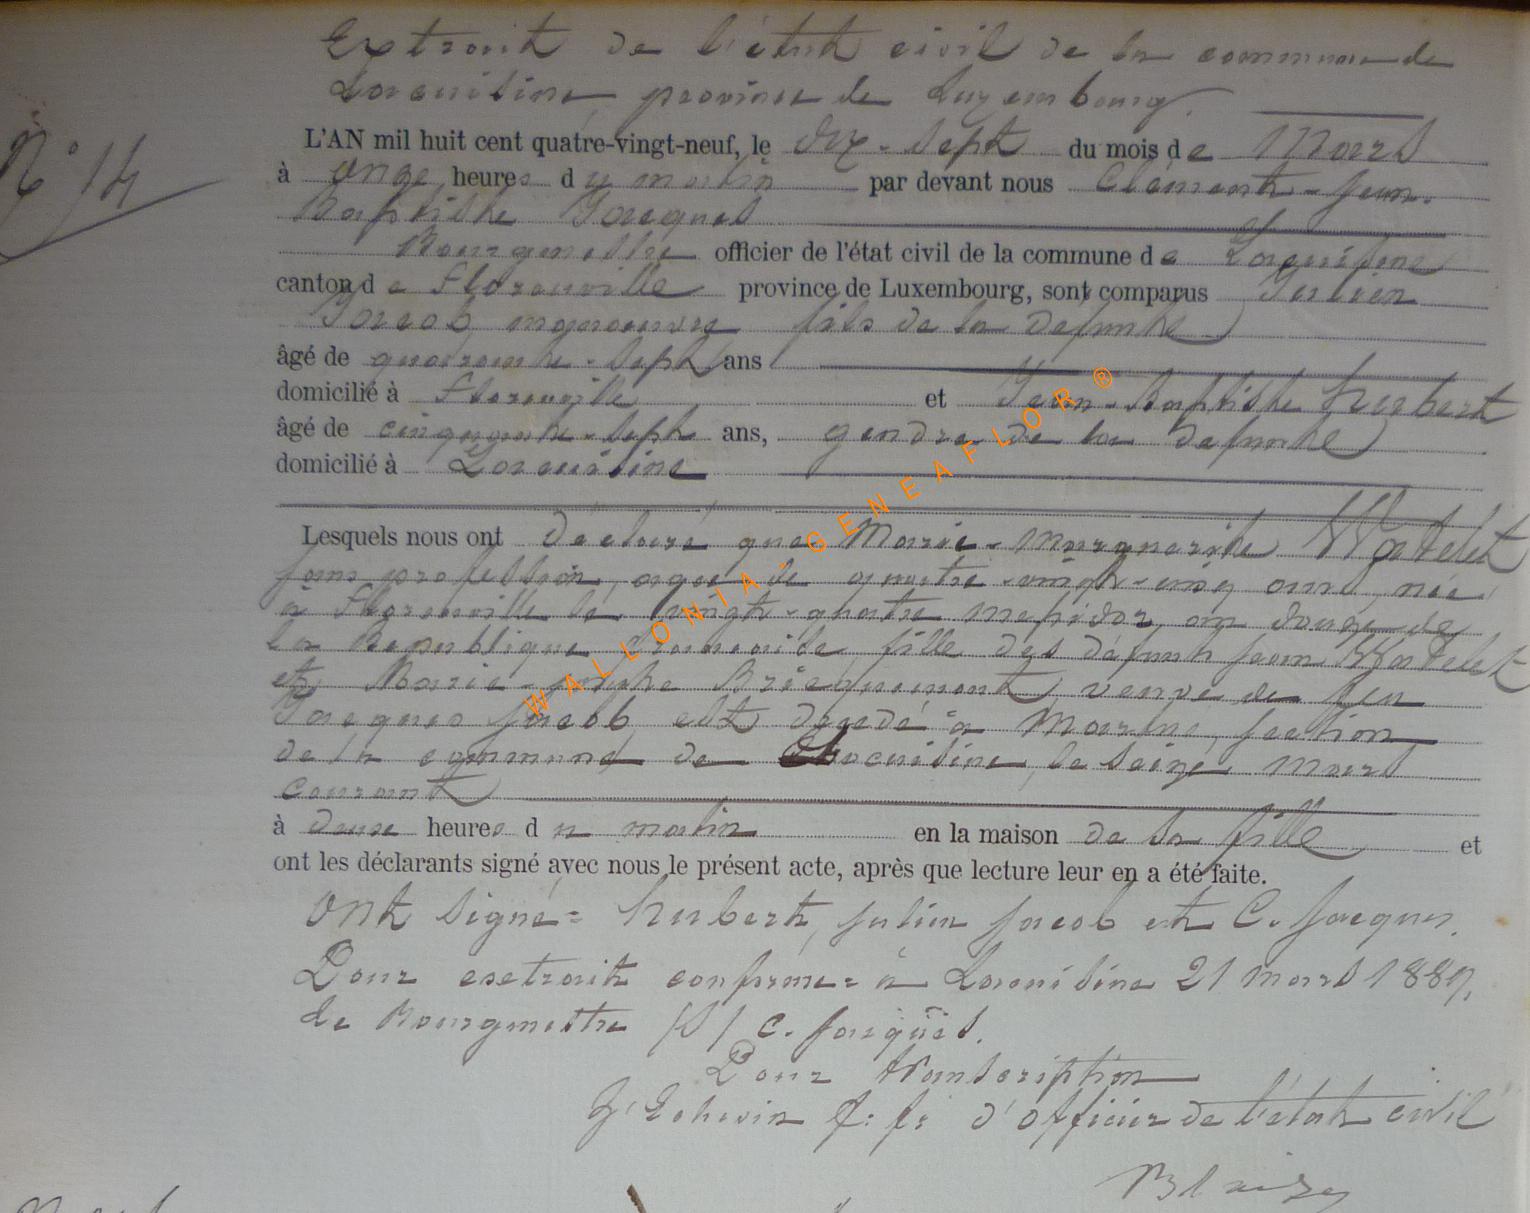 Extrait de l'état civil de la commune de
Lacuisine, province de Luxembourg.
N° 14
L'AN mil huit cent quatre-vingt-neuf, le dix-sept du mois de Mars
à onze heures du matin par devant nous Clément-Jean-
Baptiste Jacques
Bourgmestre officier de l'état civil de la commune de Lacuisine
canton de Florenville province de Luxembourg, sont comparus Julien
Jacob, manoeuvre fils de la défunte
âgé de quarante-sept ans
domicilié à Florenville et Jean-Baptiste Hubert
âgé de cinquante-sept ans, gendre de la défunte
domicilié à Lacuisine
Lesquels nous ont déclaré que Marie-Marguerite Watelet
sans profession, agée de quatre-vingt-cinq ans, née
à Florenville le vingt-quatre messidor, an douze de
la République française fille des défunts Jean Watelet
et Marie- Bricquemont, veuve de feu
Jacques Jacob, est décédé à Martué, section
de la commune de Lacuisine, le seize Mars
courant
à deux heures du matin en la maison de sa fille et
ont les déclarants signé avec nous le présent acte, après que lecture leur en a été faite.
Ont signé = Hubert, Julien Jacob et C. Jacques.
Pour extrait conforme = à Lacuisine 21 mars 1889,
Le Bourgmestre /S/ C. Jacques.
Pour transcription
L'Echevin f. f. d'officier de l'état civil
Blaise
WALLONIA - GENEAFLOR ®